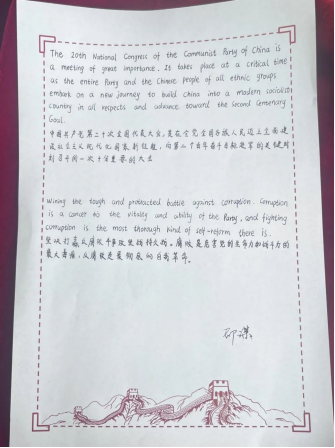 The 20th National Congress of the Communist Party of China is
a meeting of great importance. It takes place at a critical time
as the entire Party and the Chinese people of all ethnic groups
embark on a new journey to build China into a modern socialist
country in all respects and advance toward the Second Centenary
Goal.
中国共产党第二十次全国代表大会,是在全党全国各族人民迈上全面建
设社会主义现代化国家新征程,向第二个百年奋斗目标进军的关键时
刻召开的一次十分重要的大会
Wining the tough and protracted battle against corruption. Corruption
is a cancer to the vitality and ability of the Party, and fighting
corruption is the most thorough kind of self-reform there is.
坚决打赢反腐败斗争攻坚战持久战。腐败是危害党的生命力和战斗力的
最大毒瘤,反腐败是最彻底的自我革命。